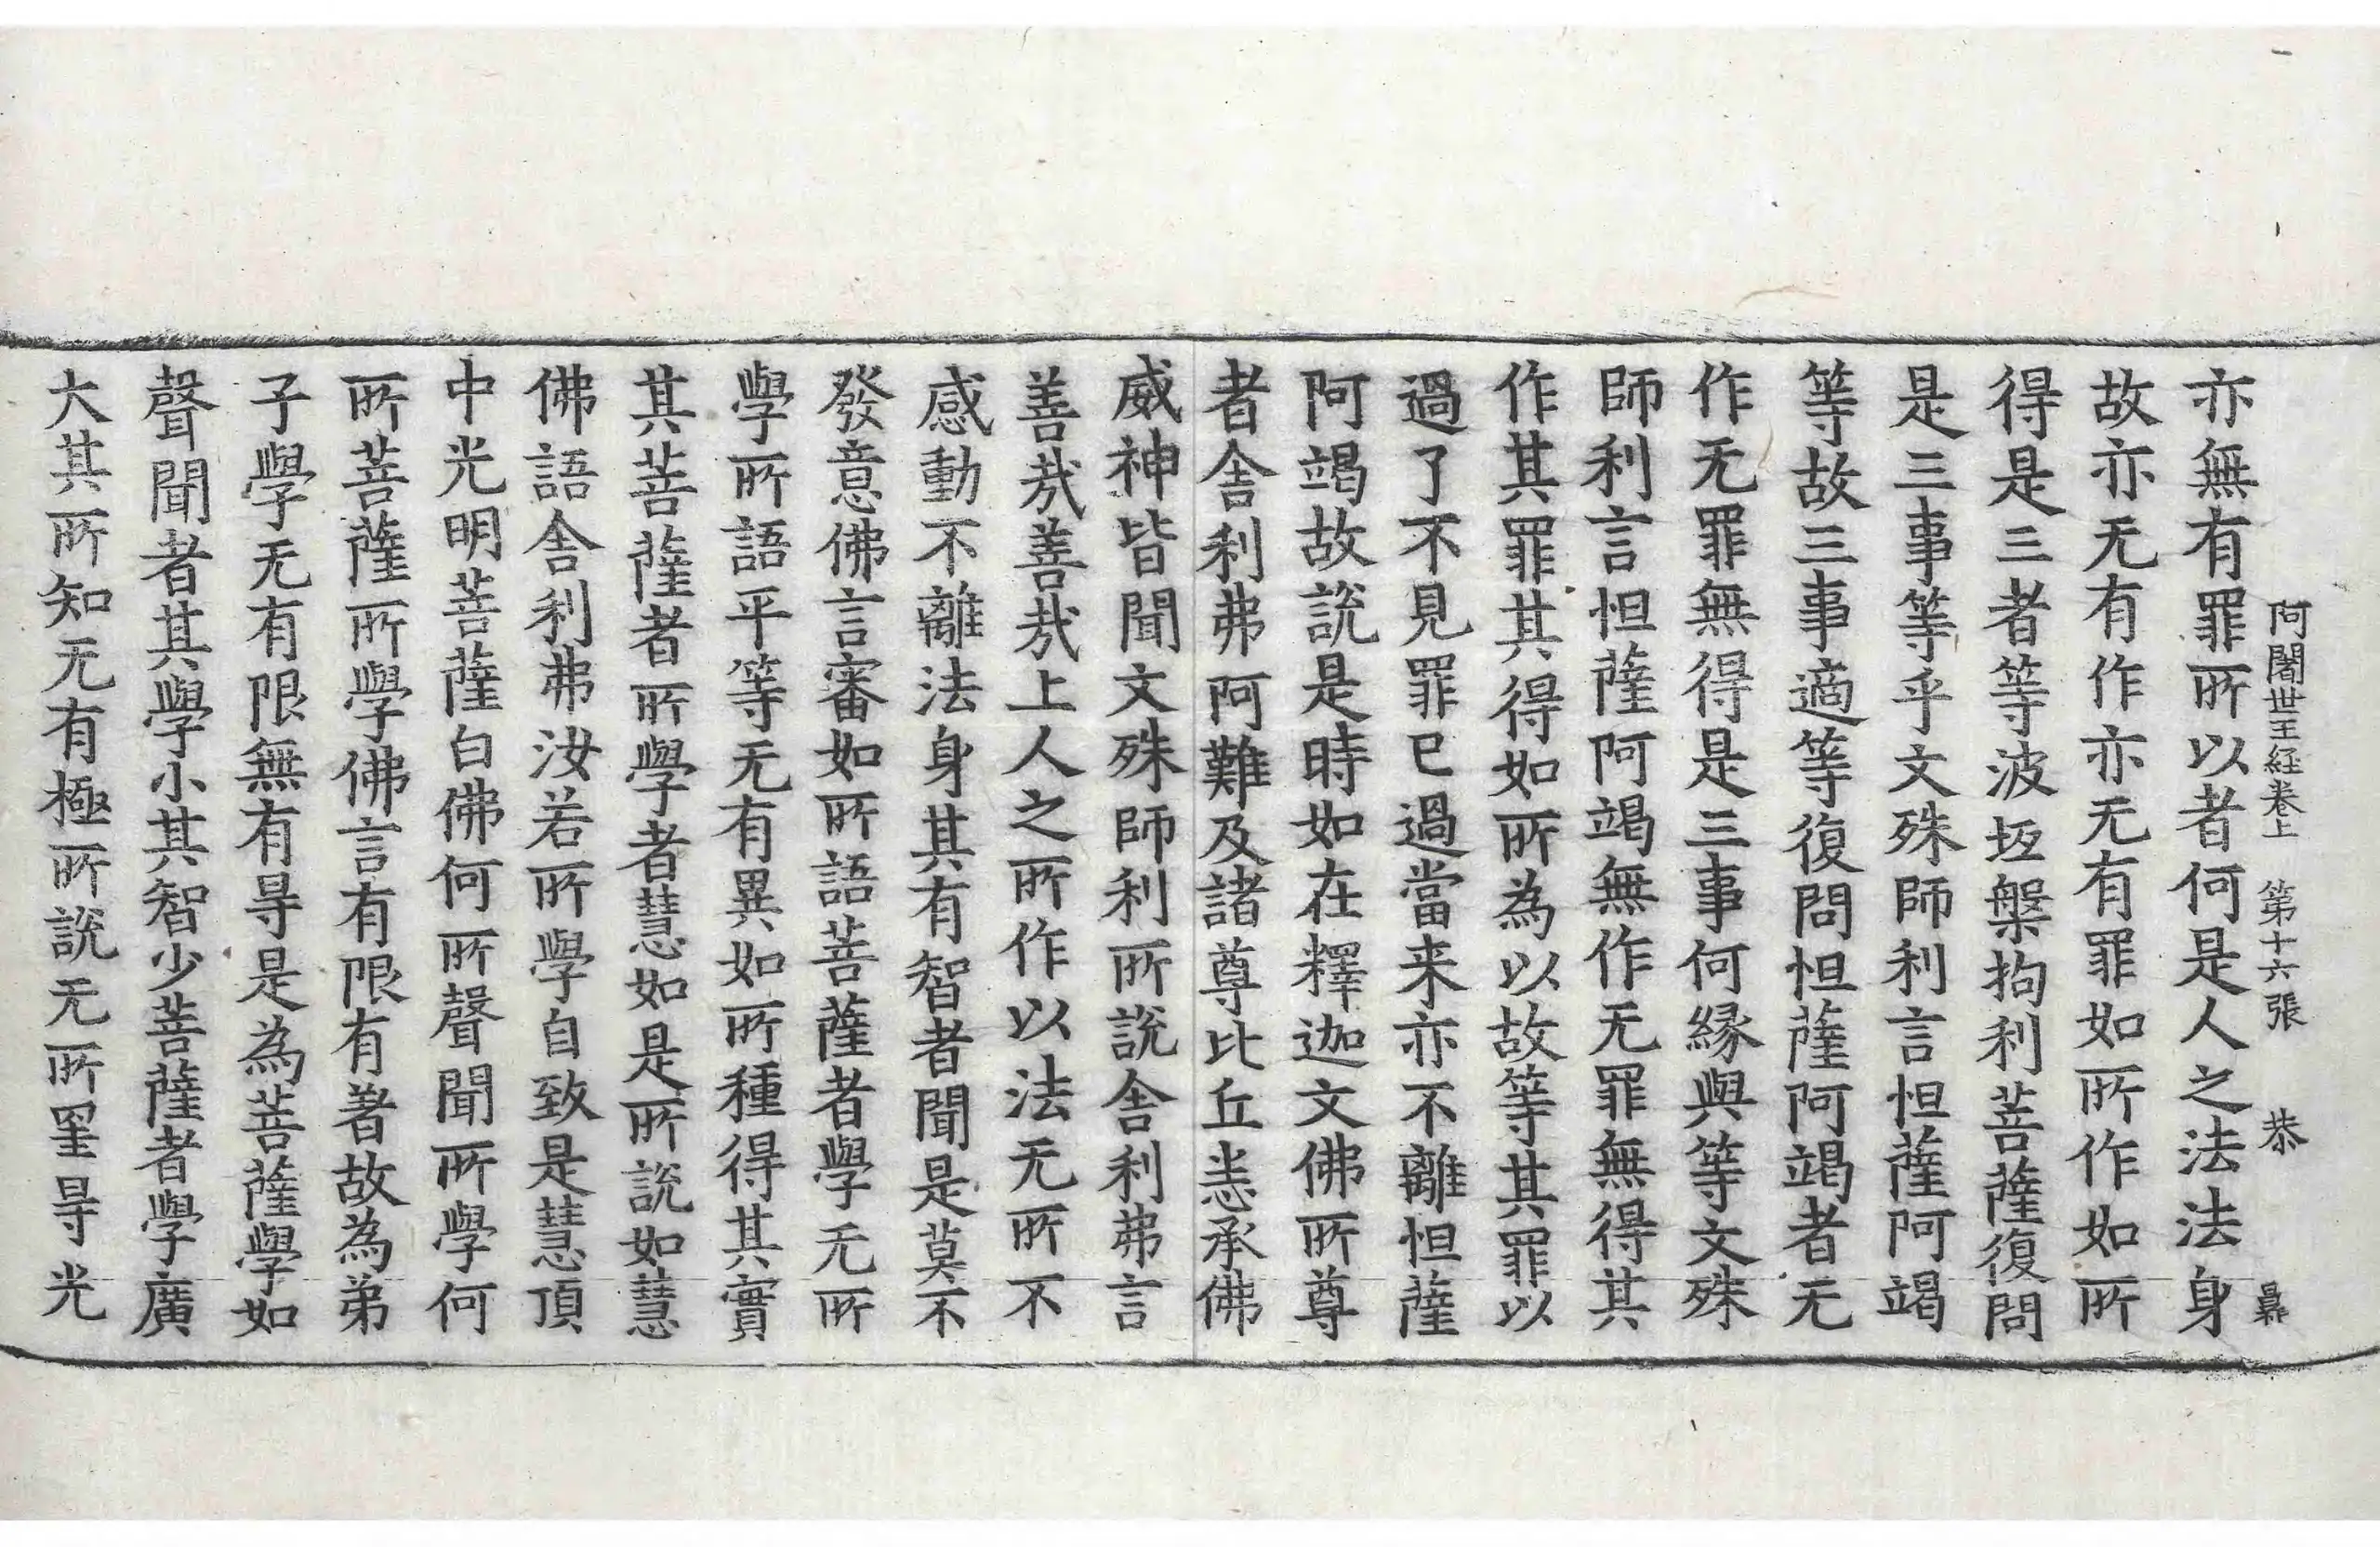 阿闍世王経巻上　第十六張　恭
亦無有罪所以者何是人之法法身
故亦无有作亦无有罪如所作如所
得是三者等波坘槃拘利菩薩復問
是三事等乎文殊師利言怛薩阿竭
等故三事適等復問怛薩阿竭者无
作无罪無得是三事何緣與等文殊
師利言怛薩阿竭無作无罪無得其
作其罪其得如所為以故等其罪以
過了不見罪已過當来亦不離怛薩
阿竭故說是時如在釋迦文佛所尊
者舍利弗阿難及諸尊比丘悉承佛
威神皆聞文殊師利所說舍利弗言
善㢤善㢤上人之所作以法无所不
感動不離法身其有智者聞是莫不
發意佛言審如所語菩薩者學无所
學所語平等无有異如所種得其實
其菩薩者所學者慧如是所說如慧
佛語舍利弗汝若所學自致是慧頂
中光明菩薩白佛何所聲聞所學何
所菩薩所學佛言有限有著故為弟
子學无有限無有㝵是為菩薩學如
聲聞者其學小其智少菩薩者學廣
大其所知无有極所說无所罣㝵光